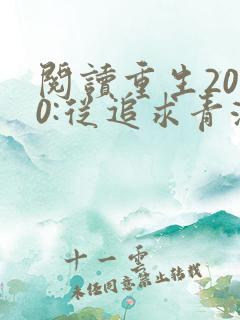 閱讀重生20
0:從追求青
十一雲
未經同意禁止轉載